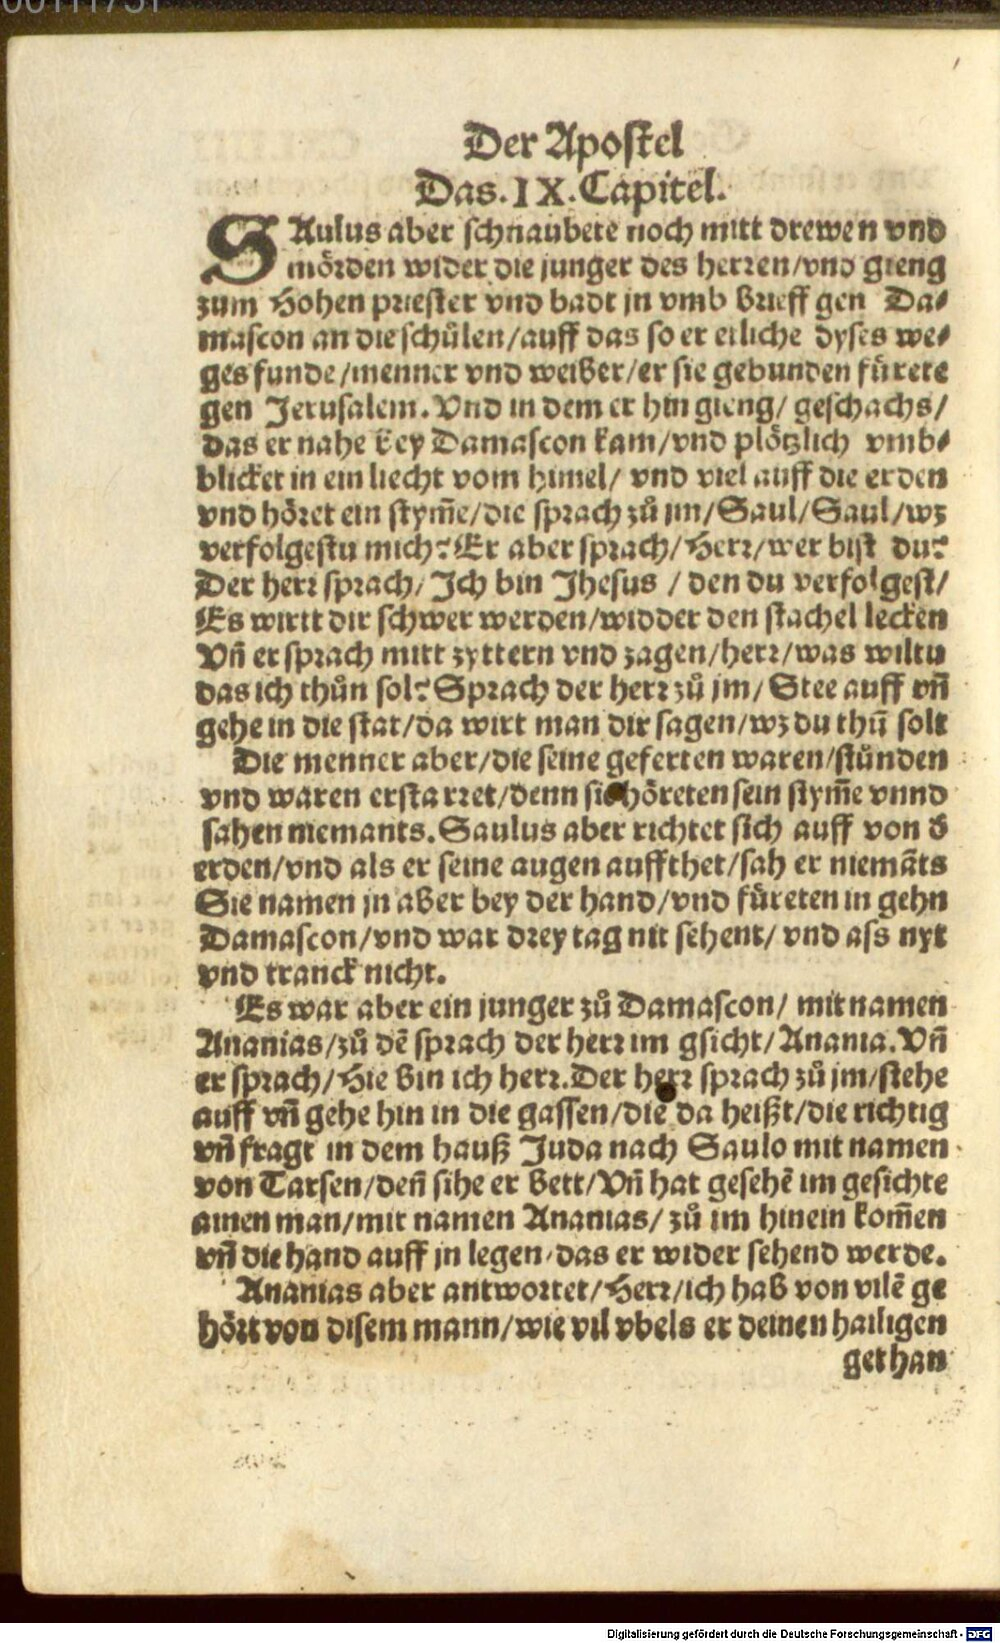 00111731
Der Apostel
Das. IX. Capitel.
SAulus aber schnaubete noch mitt drewen vnd
mörden wider die junger des herren/vnd gieng
zum Hohen priester vnd badt jn vmb brieff gen Da⸗
mascon an die schůlen/auff das so er etliche dyses we⸗
ges funde/menner vnd weiber/er sie gebunden fürete
gen Jerusalem. Vnd in dem er hin gieng/ geschachs/
das er nahe bey Damascon kam/vnd plötzlich vmb⸗
blicket in ein liecht vom himel/ vnd viel auff die erden
vnd höret ein stym̃e/die sprach zů jm/Saul/Saul/wz
verfolgestu mich? Er aber sprach/Herr/wer bist du?
Der herr sprach/ Ich bin Jhesus / den du verfolgest/
Es wirtt dir schwer werden/widder den stachel lecken
Vñ er sprach mitt zyttern vnd zagen/herr/was wiltu
das ich thůn sol? Sprach der herr zů jm/ Stee auff vñ
gehe in die stat/da wirt man dir sagen/wz du thů̃ solt
Die menner aber/die seine geferten waren/stůnden
vnd waren erstarret/denn sie höreten sein stym̃e vnnd
sahen niemants. Saulus aber richtet sich auff von d̕
erden/vnd als er seine augen auffthet/sah er niemãts
Sie namen jn aber bey der hand/vnd füreten in gehn
Damascon/vnd war drey tag nit sehent/ vnd ass nyt
vnd tranck nicht.
Es war aber ein junger zů Damascon/ mit namen
Ananias/zů dẽ sprach der herr im gsicht/Anania. Vñ
er sprach/Hie bin ich herr. Der herr sprach zů jm/stehe
auff vñ gehe hin in die gassen/die da heißt/die richtig
vñ fragt in dem hauß Juda nach Saulo mit namen
von Tarsen/deñ sihe er bett/Vñ hat gesehẽ im gesichte
ainen man/mit namen Ananias/ zů im hinein kom̃en
vñ die hand auff jn legen/das er wider sehend werde.
Ananias aber antwortet/Herr/ich hab von vilẽ ge
hört von disem mann/wie vil vbels er deinen hailigen
gethan
Digitalisierung gefördert durch die Deutsche Forschungsgemeinschaft - DFG